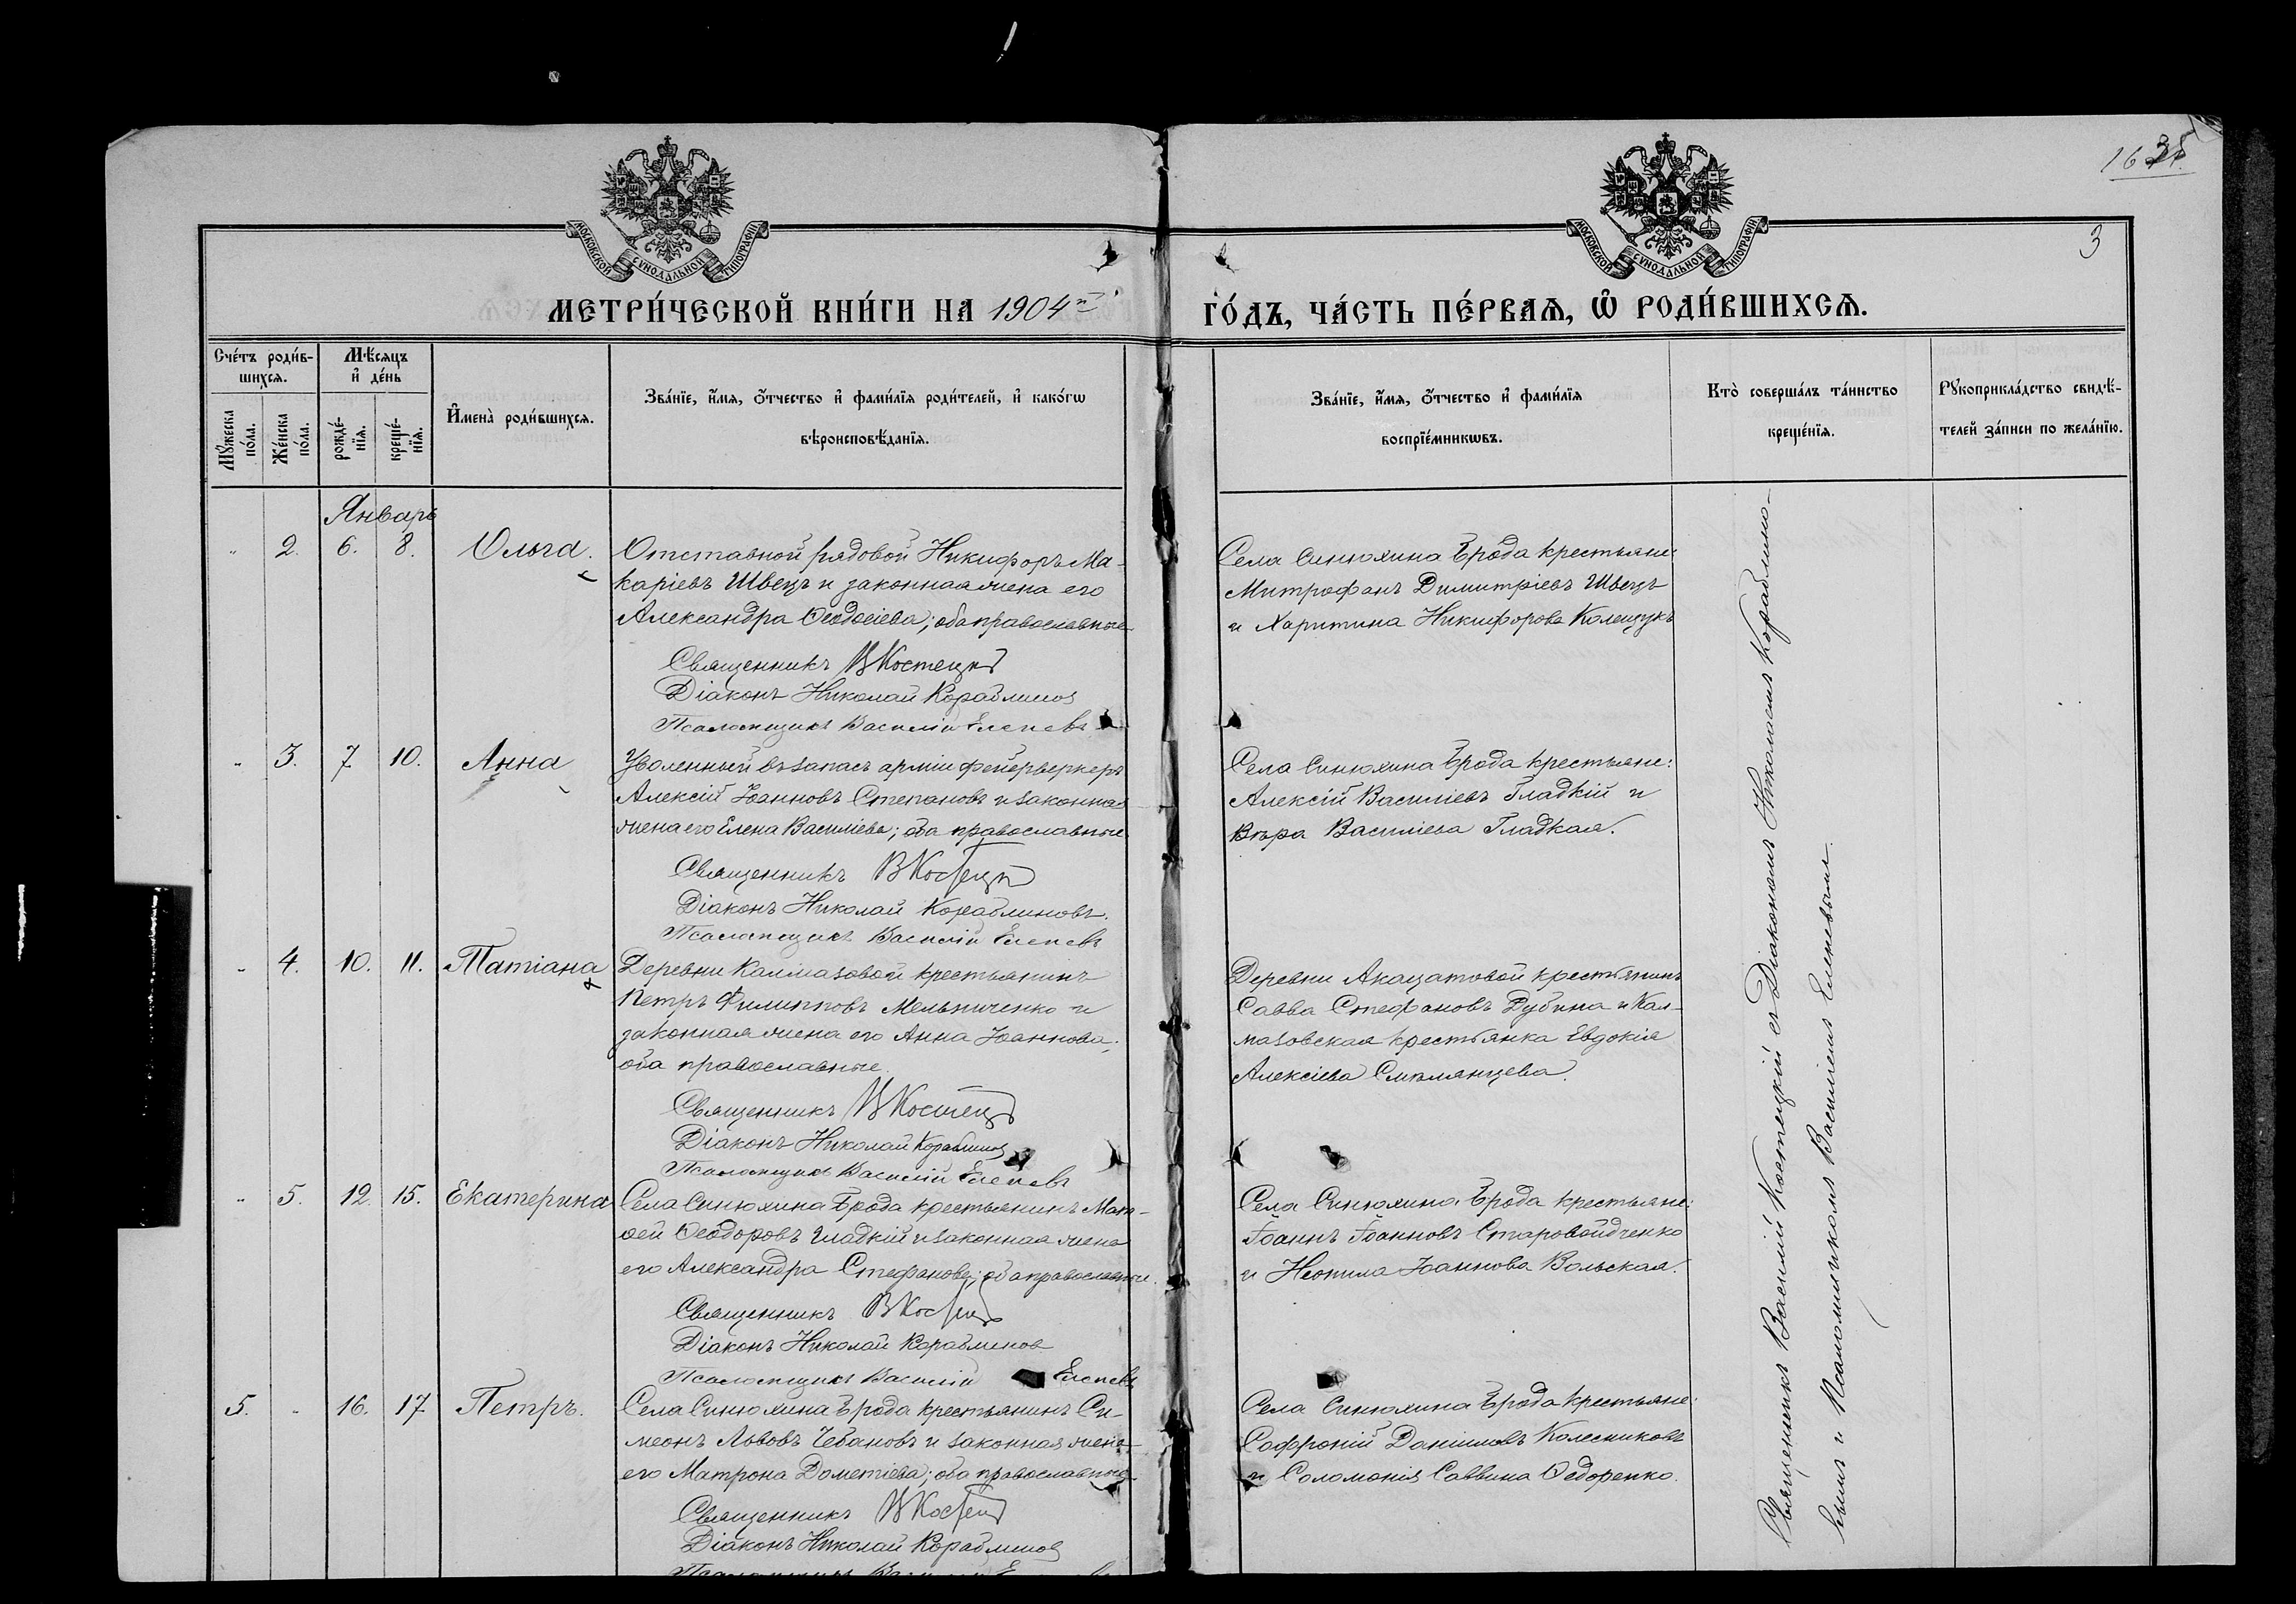 1635
МОСКОВСКОЙ СѴНОДАЛЬНОЙ ТИПОГРАФІИ
МОСКОВСКОЙ СѴНОДАЛЬНОЙ ТИПОГРАФІИ
3
МЕТРИ́ЧЕСКОЙ КНИ́ГИ НА 1904й
ГО́ДЪ, ЧА́СТЬ ПЕ́РВАѦ, Ѽ РОДИ́ВШИХСѦ.
Сче́тъ роди́в-
шихсѧ.
Мѣ́сѧцъ
и҆ де́нь
Мꙋ́жеска по́ла.
Же́нска по́ла.
рожде́-
нїѧ.
креще́-
нїѧ.
И҆мена̀ роди́вшихсѧ.
Зва́нїе, и҆́мѧ, ѻ҆́тчество и҆ фамѝлїѧ роди́телей, и҆ како́гѡ
вѣроисповѣ́данїѧ.
Зва́нїе, и҆́мѧ, ѻ҆́тчество и҆ фамѝлїѧ
воспрїе́мникѡвъ.
Кто̀ соверша́лъ та́инство
креще́нїѧ.
Рꙋкоприкла́дство свидѣ́-
телей за́писи по жела́нїю.
Январь
" 2. 6. 8. Ольга.
Отставной рядовой Никифоръ Ма-
каріевъ Швецъ и законная жена его
Александра Ѳеодосіева; оба православные
Священникъ В Костецкій
Діаконъ Николай Кораблиновъ
Псаломщикъ Василій Елепевъ
Села Синюхина Брода крестьяне:
Митрофанъ Димитріевъ Швецъ
и Харитина Никифорова Колещукъ
" 3. 7 10. Анна
Уволенный въ запасъ арміи фейерверкеръ
Алексій Іоанновъ Степановъ и законная
жена его Елена Василіева; оба православные
Священникъ В Костецкій
Діаконъ Николай Кораблиновъ.
Псаломщикъ Василій Елепевъ
Села Синюхина Брода крестьяне:
Алексій Василіевъ Гладкій и
Вѣра Василіева Гладкая.
" 4. 10. 11. Татіана
Деревни Калмазовой крестьянинъ
Петръ Филипповъ Мельниченко и
законная жена его Анна Іоаннова;
оба православные.
Священникъ В Костецкій
Діаконъ Николай Кораблиновъ
Псаломщикъ Василій Елепевъ
Деревни Акацатовой крестьянинъ
Савва Стефановъ Дубина и Кал-
мазовская крестьянка Евдокія
Алексіева Смѣлянцева.
" 5. 12. 15. Екатерина
Села Синюхина Брода крестьянинъ Мат-
ѳей Ѳеодоровъ Гладкій и законная жена
его Александра Стефанова; оба православные.
Священникъ В Костецкій
Діаконъ Николай Кораблинов
Псаломщикъ Василій Елепевъ
Села Синюхина Брода крестьяне:
Іоаннъ Іоанновъ Старовойдченко
и Неонила Іоаннова Вольская.
5. " 16. 17 Петръ.
Села Синюхина Брода крестьянинъ Си-
меонъ Львовъ Чебановъ и законная жена
его Матрона Дометіева; оба православные.
Священникъ В Костецкій
Діаконъ Николай Кораблиновъ
Псаломщикъ Василій
Села Синюхина Брода крестьяне:
Софроній Даніиловъ Колесниковъ
и Соломонія Саввина Ѳедоренко.
Священникъ Василій Костецкій съ Діакономъ Николаемъ Кораблино-
вымъ и Псаломщикомъ Василіемъ Елепевымъ.